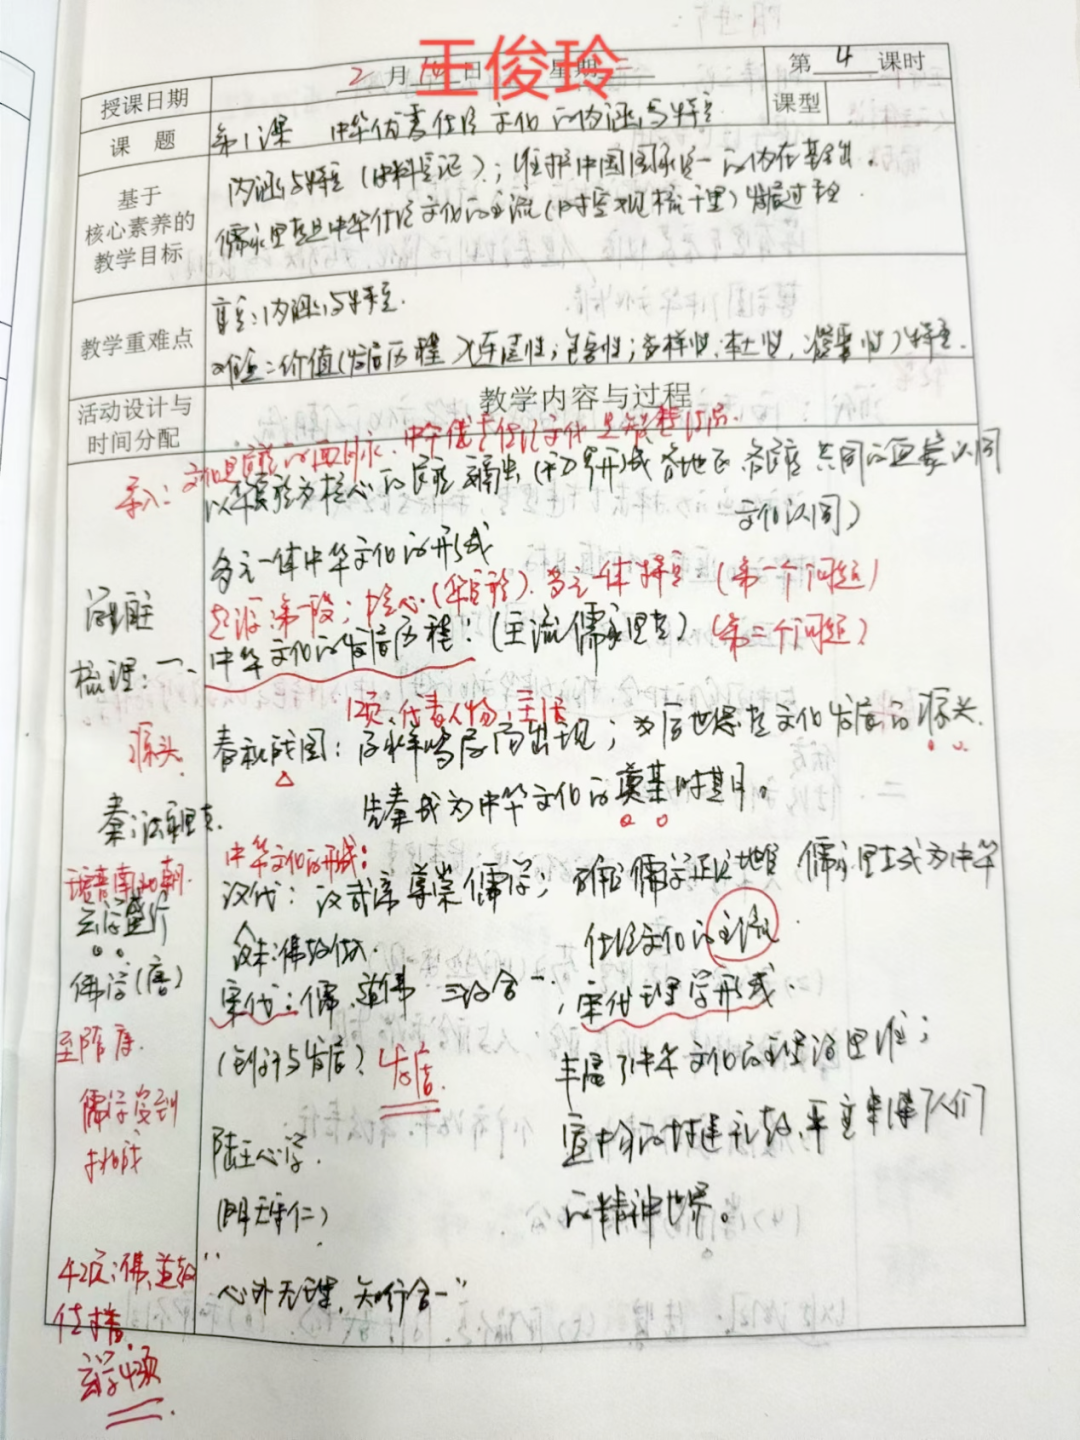 王俊玲
授课日期 2月 日 星期 第 4 课时
课型
课题 第1课 中华优秀传统文化的内涵与特点.
基于核心素养的教学目标
内涵与特点(史料实证);维护中国国家统一的内在基出.
儒家思想是中华传统文化的主流(时空观梳理)发展过程
教学重难点
重点:内涵与特点.
难点:价值(发展历程)连居性;包容性;多样性.本土性,凝聚性)特点.
活动设计与时间分配
教学内容与过程
导入:文化是民族的血脉,中华优秀传统文化是智慧结晶.
以华夏族为核心的民族交融(初步形成各地区各民族共同的国家认同
文化认同)
多元一体中华文化的形成
起源:第一段;核心(华夏族).多元一体特点(第一个问题)
问题
梳理:一、中华文化的发展历程:(主流儒家思想)(第二个问题)
12页,代表人物,主张
源头.
春秋战国:百家争鸣局面出现;为后世思想文化发展的源头.
先秦成为中华文化的奠基时期。
秦:法家思想.
中华文化的形成:
汉代:汉武帝尊崇儒学;确Neg儒学正统地位 儒家思想成为中华
传统文化的主流.
魏晋南北朝.
玄学盛行
汉末:佛教传入.
佛学(唐)
宋代:儒.道佛三教合一,宋代理学形成.
至隋唐.
(创新与发展)发展.
丰富了中华文化的理论思维;
儒学受到
挑战
陆王心学.
宣扬的封建礼教,严重束缚了人们
(明王守仁)
的精神世界。
42页:佛、道教
传播.
"心外无理,知行合一"
玄学4页